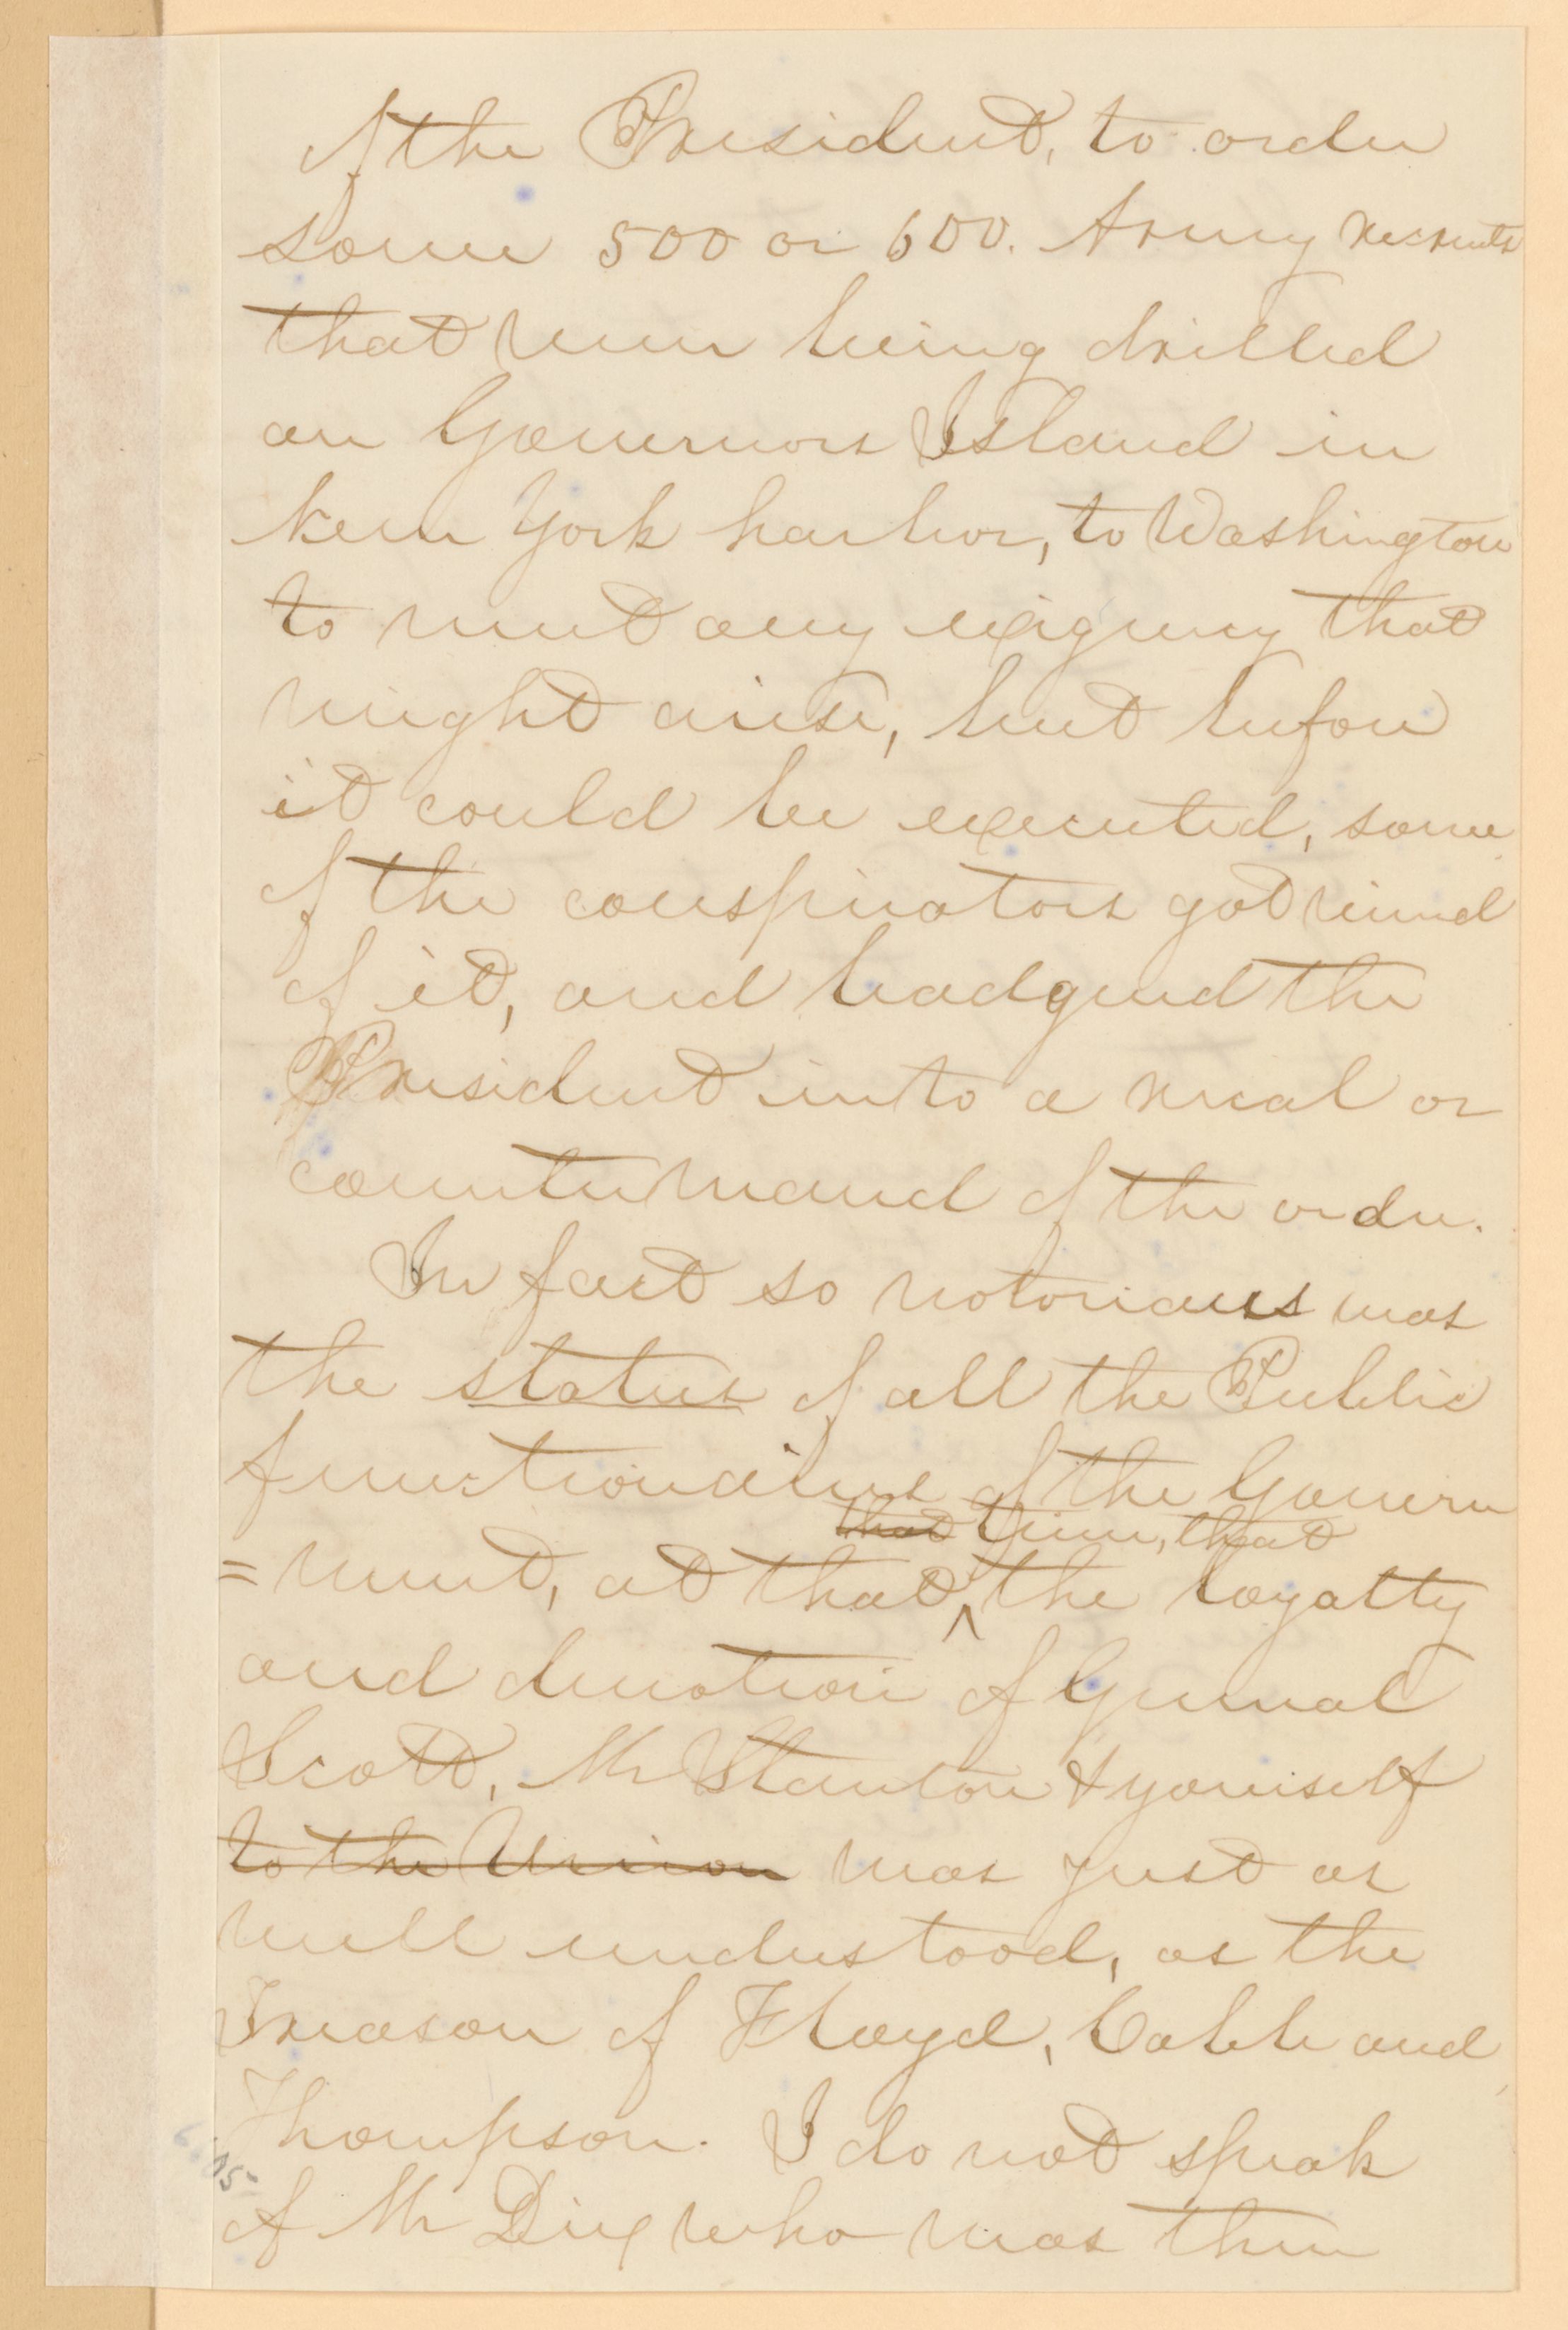 of the President, to order
some 500 or 600. Army recruits
that were being drilled
on Governors Island in
New York harbor, to Washington
to meet any exigency that
might arise, but before
it could be executed, some
of the conspirators got wind
of it, and badgered the
President into a recal or
countermand of the order.
In fact so notorious was
the status of all the Public
functionaries of the Govern
that time, that
=ment, at that ^ the loyalty
and devotion of General
Scott, Mr Stanton & yourself
to the Union was just as
well understood, as the
Treason of Floyd, Cobb and
Thompson. I do not speak
of Mr Dix who was then